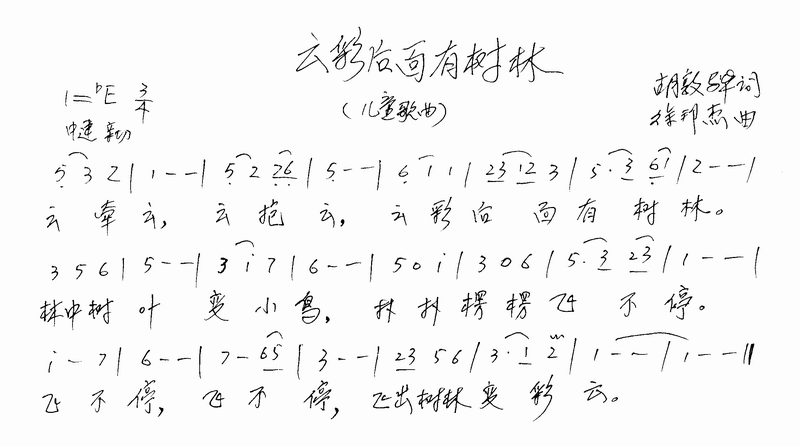 云彩后面有树林
（儿童歌曲）
1=♭E 3/4
中速
胡敦骅词
徐邦杰曲
5 3 2 | 1 - - | 5 2 26 | 5 - - | 6 1 1 | 23 12 3 | 5· 3 61 | 2 - - |
云牵云，云抱云，云彩后面有树林。
3 5 6 | 5 - - | 3 i 7 | 6 - - | 5 0 i | 3 0 6 | 5· 3 23 | 1 - - |
林中树叶变小鸟，扑扑楞楞飞不停。
i - 7 | 6 - - | 7 - 65 | 3 - - | 23 5 6 | 3· 1 2 | 1 - - | 1 - - ‖
飞不停，飞不停，飞出树林变彩云。